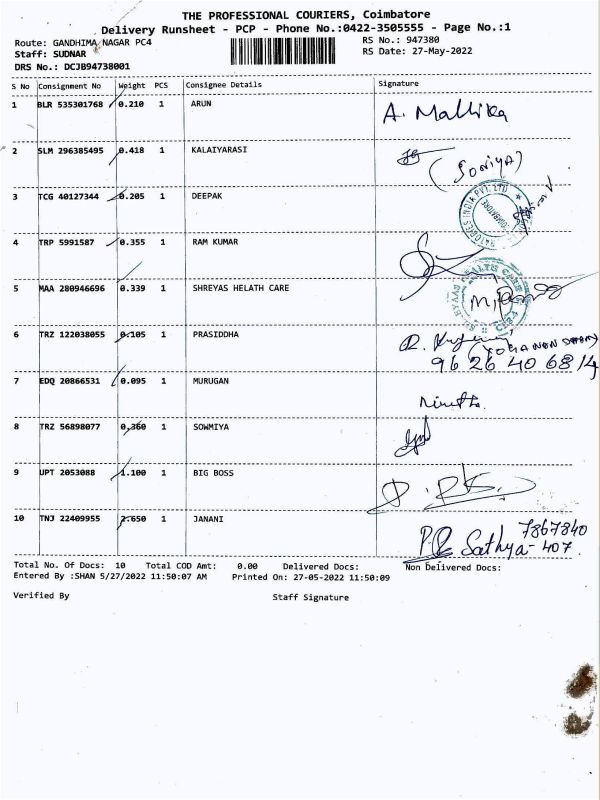 THE PROFESSIONAL COURIERS, Coimbatore
Delivery Runsheet - PCP - Phone No.:0422-3505555 - Page No.:1
Route: GANDHIMA NAGAR PC4 RS No.: 947380
Staff: SUDNAR RS Date: 27-May-2022
DRS No.: DCJB94738001
S No Consignment No Weight PCS Consignee Details Signature
1 BLR 535301768 0.210 1 ARUN A. Mallika
2 SLM 296385495 0.418 1 KALAIYARASI (SONIYA)
3 TCG 40127344 0.205 1 DEEPAK
4 TRP 5991587 0.355 1 RAM KUMAR
5 MAA 280946696 0.339 1 SHREYAS HELATH CARE
6 TRZ 122038055 0.105 1 PRASIDDHA
96 26 40 68 14
7 EDQ 20866531 0.095 1 MURUGAN
8 TRZ 56898077 0.360 1 SOWMIYA
9 UPT 2053088 1.100 1 BIG BOSS
10 TNJ 22409955 2.650 1 JANANI 7867840
Sathya- 407.
Total No. Of Docs: 10 Total COD Amt: 0.00 Delivered Docs: Non Delivered Docs:
Entered By :SHAN 5/27/2022 11:50:07 AM Printed On: 27-05-2022 11:50:09
Verified By Staff Signature